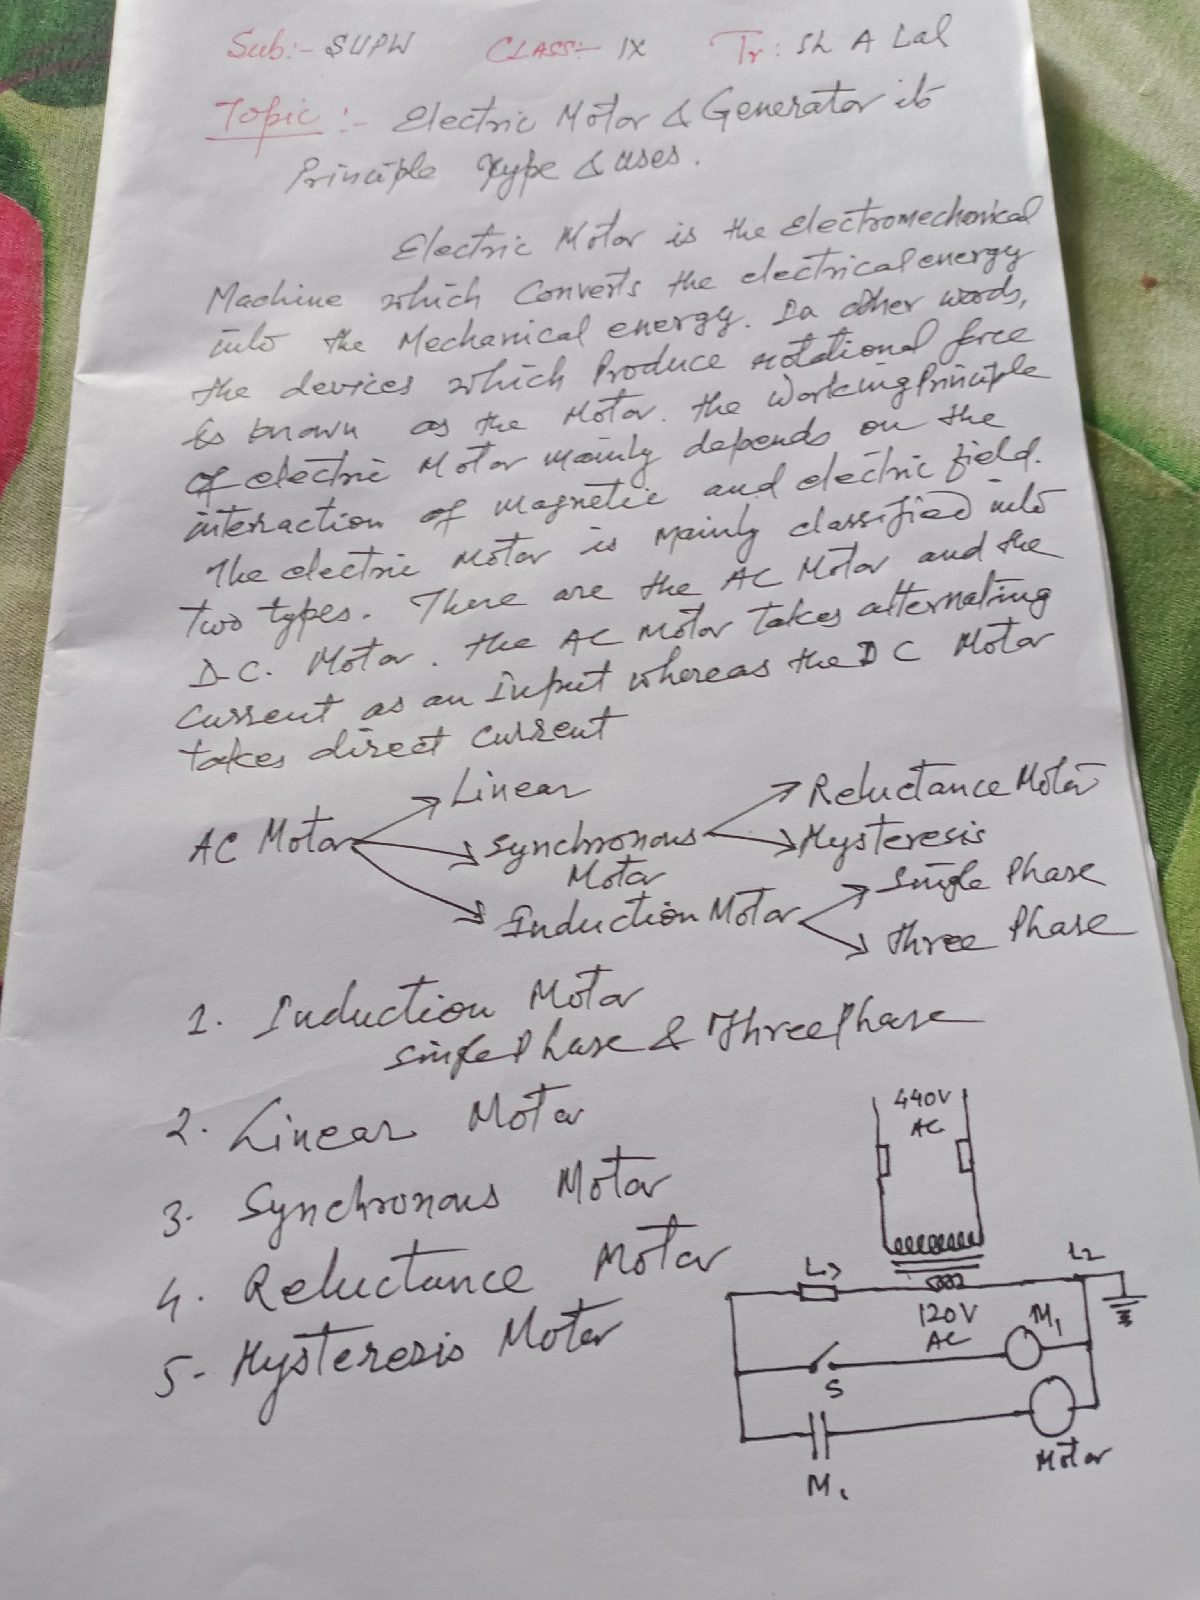 Sub:- SUPW CLASS:- IX Tr: Sh A Lal
Topic:- Electric Motor & Generator its
Principle Type & uses.
Electric Motor is the electromechanical
Machine which converts the electrical energy
into the Mechanical energy. In other words,
the devices which Produce rotational force
is known as the Motor. the Working Principle
of electric Motor mainly depends on the
interaction of magnetic and electric field.
The electric motor is mainly classified into
two types. There are the AC Motor and the
D.C. Motor. the AC motor takes alternating
current as an input whereas the DC Motor
takes direct current
Linear Reluctance Motor
AC Motor Synchronous Hysteresis
Motor Single Phase
Induction Motor Three Phase
1. Induction Motor
Single Phase & Three Phase
2. Linear Motor
3. Synchronous Motor
4. Reluctance Motor
5- Hysteresis Motor
440V
AC
L2
120V
AC
M1
S
Motor
M1